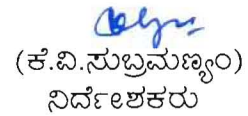 (ಕೆ.ವಿ.ಸುಬ್ರಮಣ್ಯಂ)
ನಿರ್ದೇಶಕರು